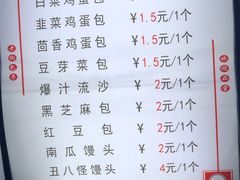 白菜鸡蛋包
韭菜鸡蛋包 ¥1.5元/1个
茴香鸡蛋包 ¥1.5元/1个
豆芽菜包 ¥1.5元/1个
爆汁流沙 ¥2元/1个
黑芝麻包 ¥2元/1个
红豆包 ¥2元/1个
南瓜馒头 ¥2元/1个
丑八怪馒头 ¥4元/1个